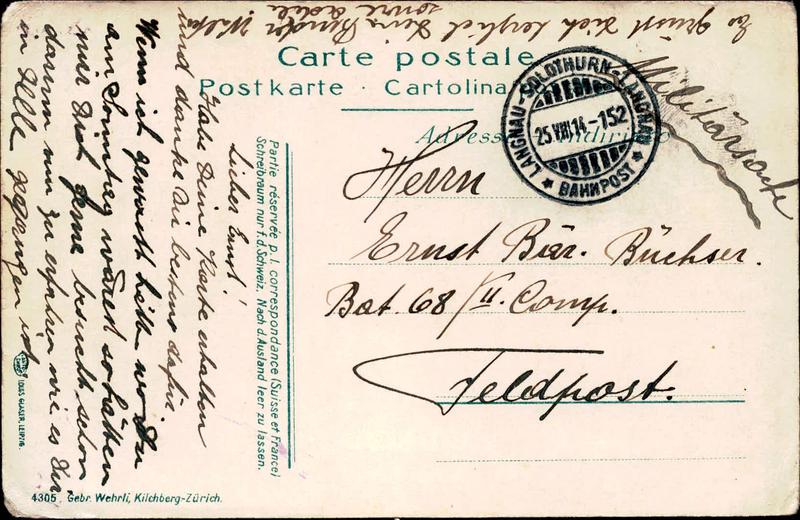 Carte postale
Postkarte · Cartolina
LANGNAU-SOLOTHURN-LANGNAU
25.VIII.14.-152
★ BAHNPOST ★
Militärsache
Herrn
Ernst Bär. Büchser.
Bat. 68/II. Comp.
Feldpost.
Partie réservée p. l. correspondance (Suisse et France)
Schreibraum nur f. d. Schweiz. Nach d. Ausland leer zu lassen.
Lieber Ernst!
Habe Deine Karte erhalten
und danke Dir bestens dafür.
Wenn ich gewusst hätte wo Du
am Sonntag warest so hätten
wir Dich gerne besucht schon
darum um zu erfahren wie es Dir
in gegangen ist.
Es grüsst Dich herzlich Dein Bruder
sowie
LOUIS GLASER, LEIPZIG.
4305 Gebr. Wehrli, Kilchberg-Zürich.